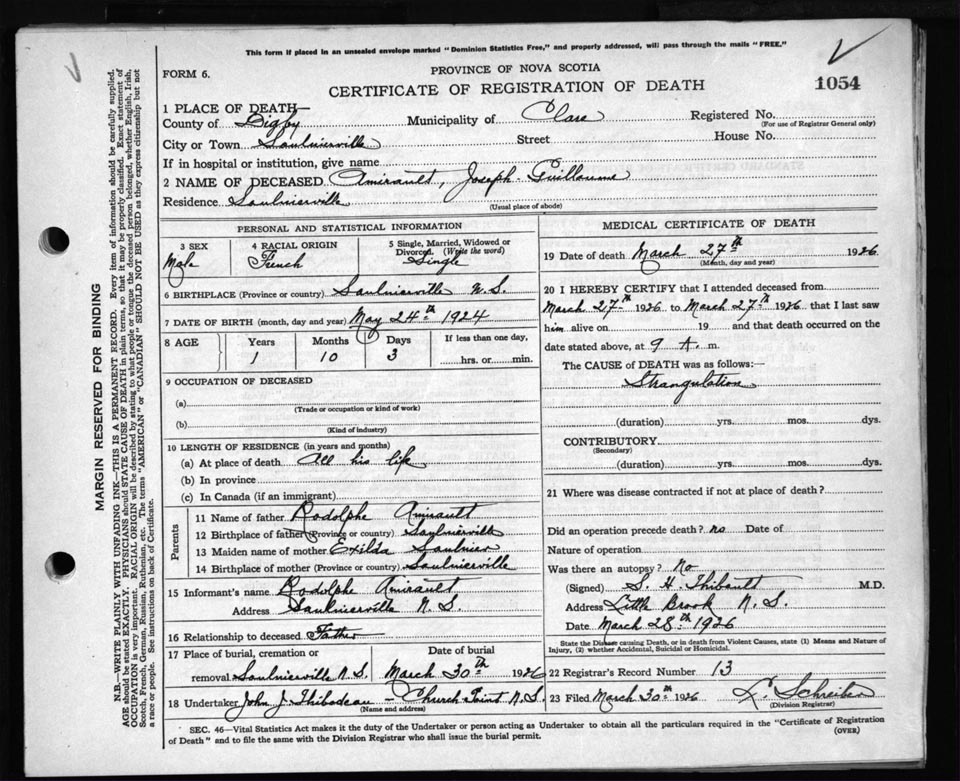 This form if placed in an unsealed envelope marked "Dominion Statistics Free," and properly addressed, will pass through the mails "FREE."
FORM 6.
PROVINCE OF NOVA SCOTIA
CERTIFICATE OF REGISTRATION OF DEATH
1054
1 PLACE OF DEATH—
County of Digby Municipality of Clare Registered No.
(For use of Registrar General only)
City or Town Saulnierville Street House No.
If in hospital or institution, give name
2 NAME OF DECEASED Amirault, Joseph Guillaume
Residence Saulnierville
(Usual place of abode)
PERSONAL AND STATISTICAL INFORMATION
3 SEX Male
4 RACIAL ORIGIN French
5 Single, Married, Widowed or Divorced (Write the word) Single
6 BIRTHPLACE (Province or country) Saulnierville N.S.
7 DATE OF BIRTH (month, day and year) May 24th 1924
8 AGE Years Months Days If less than one day,
1 10 3 hrs. or min.
9 OCCUPATION OF DECEASED
(a)
(Trade or occupation or kind of work)
(b)
(Kind of industry)
10 LENGTH OF RESIDENCE (in years and months)
(a) At place of death All his life
(b) In province
(c) In Canada (if an immigrant)
Parents
11 Name of father Rodolphe Amirault
12 Birthplace of father (Province or country) Saulnierville
13 Maiden name of mother Exilda Saulnier
14 Birthplace of mother (Province or country) Saulnierville
15 Informant's name Rodolphe Amirault
Address Saulnierville N.S.
16 Relationship to deceased Father
17 Place of burial, cremation or Date of burial
removal Saulnierville N.S. March 30th 1926
18 Undertaker John J. Thibodeau Church Point N.S.
(Name and address)
MEDICAL CERTIFICATE OF DEATH
19 Date of death March 27th 1926
(Month, day and year)
20 I HEREBY CERTIFY that I attended deceased from
March 27th 1926 to March 27th 1926 that I last saw
him alive on 19 and that death occurred on
date stated above, at 9 A. m.
The CAUSE of DEATH was as follows:—
Strangulation
(duration) yrs. mos. dys.
CONTRIBUTORY
(Secondary)
(duration) yrs. mos. dys.
21 Where was disease contracted if not at place of death?
Did an operation precede death? no Date of
Nature of operation
Was there an autopsy? No
(Signed) S. H. Thibault M.D.
Address Little Brook N.S.
Date March 28th 1926
State the Disease causing Death, or in death from Violent Causes, state (1) Means and Nature of
Injury, (2) whether Accidental, Suicidal or Homicidal.
22 Registrar's Record Number 13
23 Filed March 30th 1926 Schreiber
(Division Registrar)
SEC. 46—Vital Statistics Act makes it the duty of the Undertaker or person acting as Undertaker to obtain all the particulars required in the "Certificate of Registration
of Death" and to file the same with the Division Registrar who shall issue the burial permit.
(OVER)
MARGIN RESERVED FOR BINDING
N.B.—WRITE PLAINLY WITH UNFADING INK—THIS IS A PERMANENT RECORD. Every item of information should be carefully supplied.
AGE should be stated EXACTLY. PHYSICIANS should STATE CAUSE OF DEATH in plain terms, so that it may be properly classified. Exact statement of
OCCUPATION is very important. RACIAL ORIGIN will be described by stating to what people or tongue the deceased person belonged, whether English, Irish,
Scotch, French, German, Russian, Ruthenian, etc. The terms "AMERICAN" or "CANADIAN" SHOULD NOT BE USED as they express citizenship but not
a race or people. See instructions on back of Certificate.